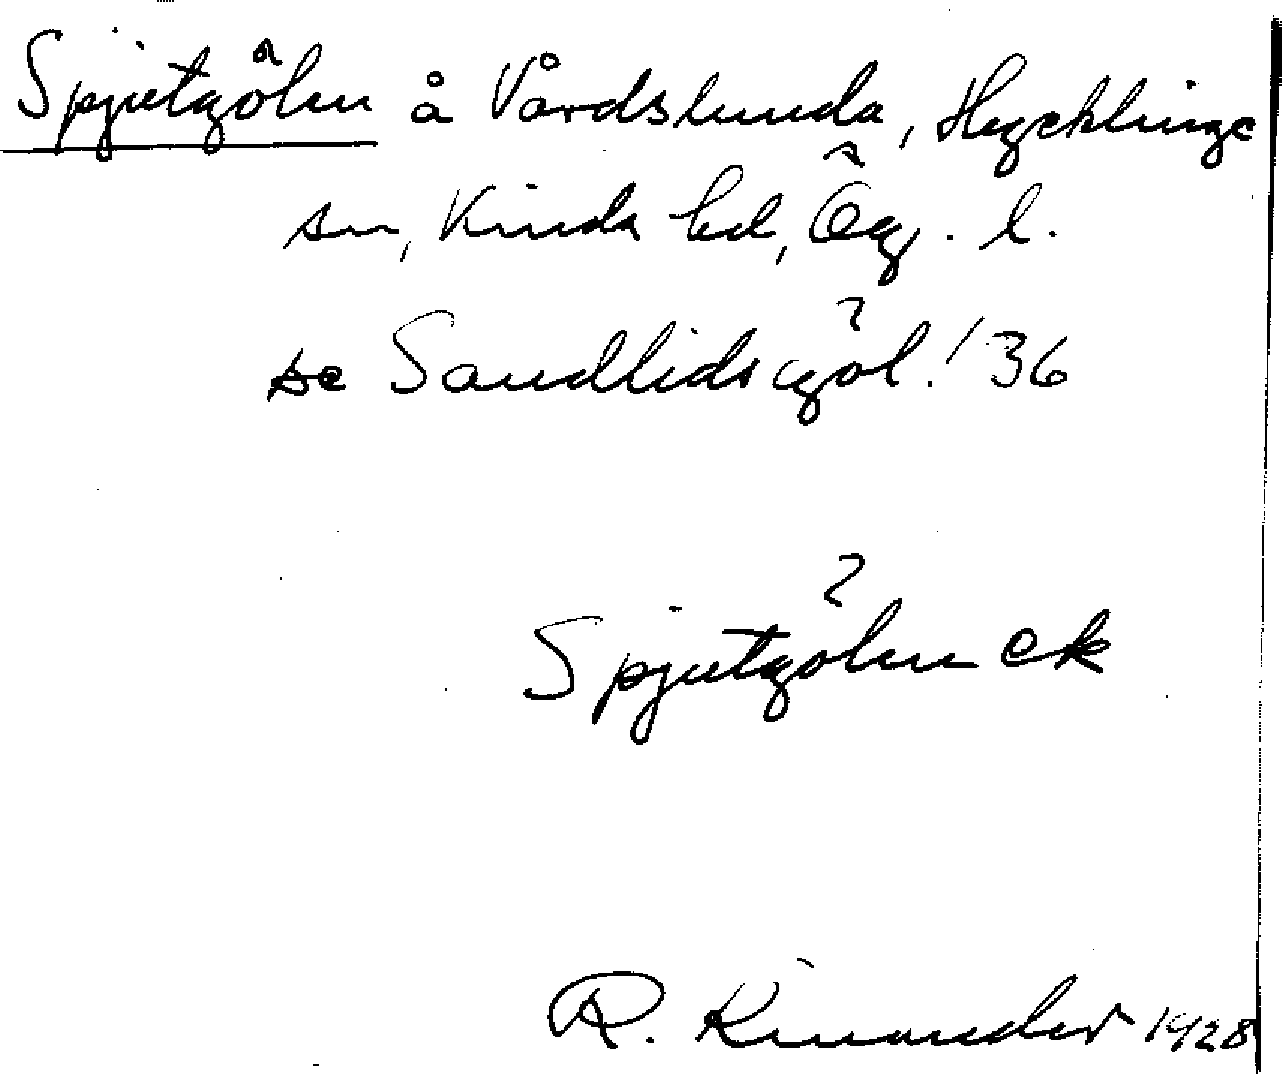 Spjutgöln å Vårdslunda, Hycklinge
sn, Kinda hd, Ög. l.
se Sandlidsgöl! 36
Spjutgölen ek
R. Kinander 1928